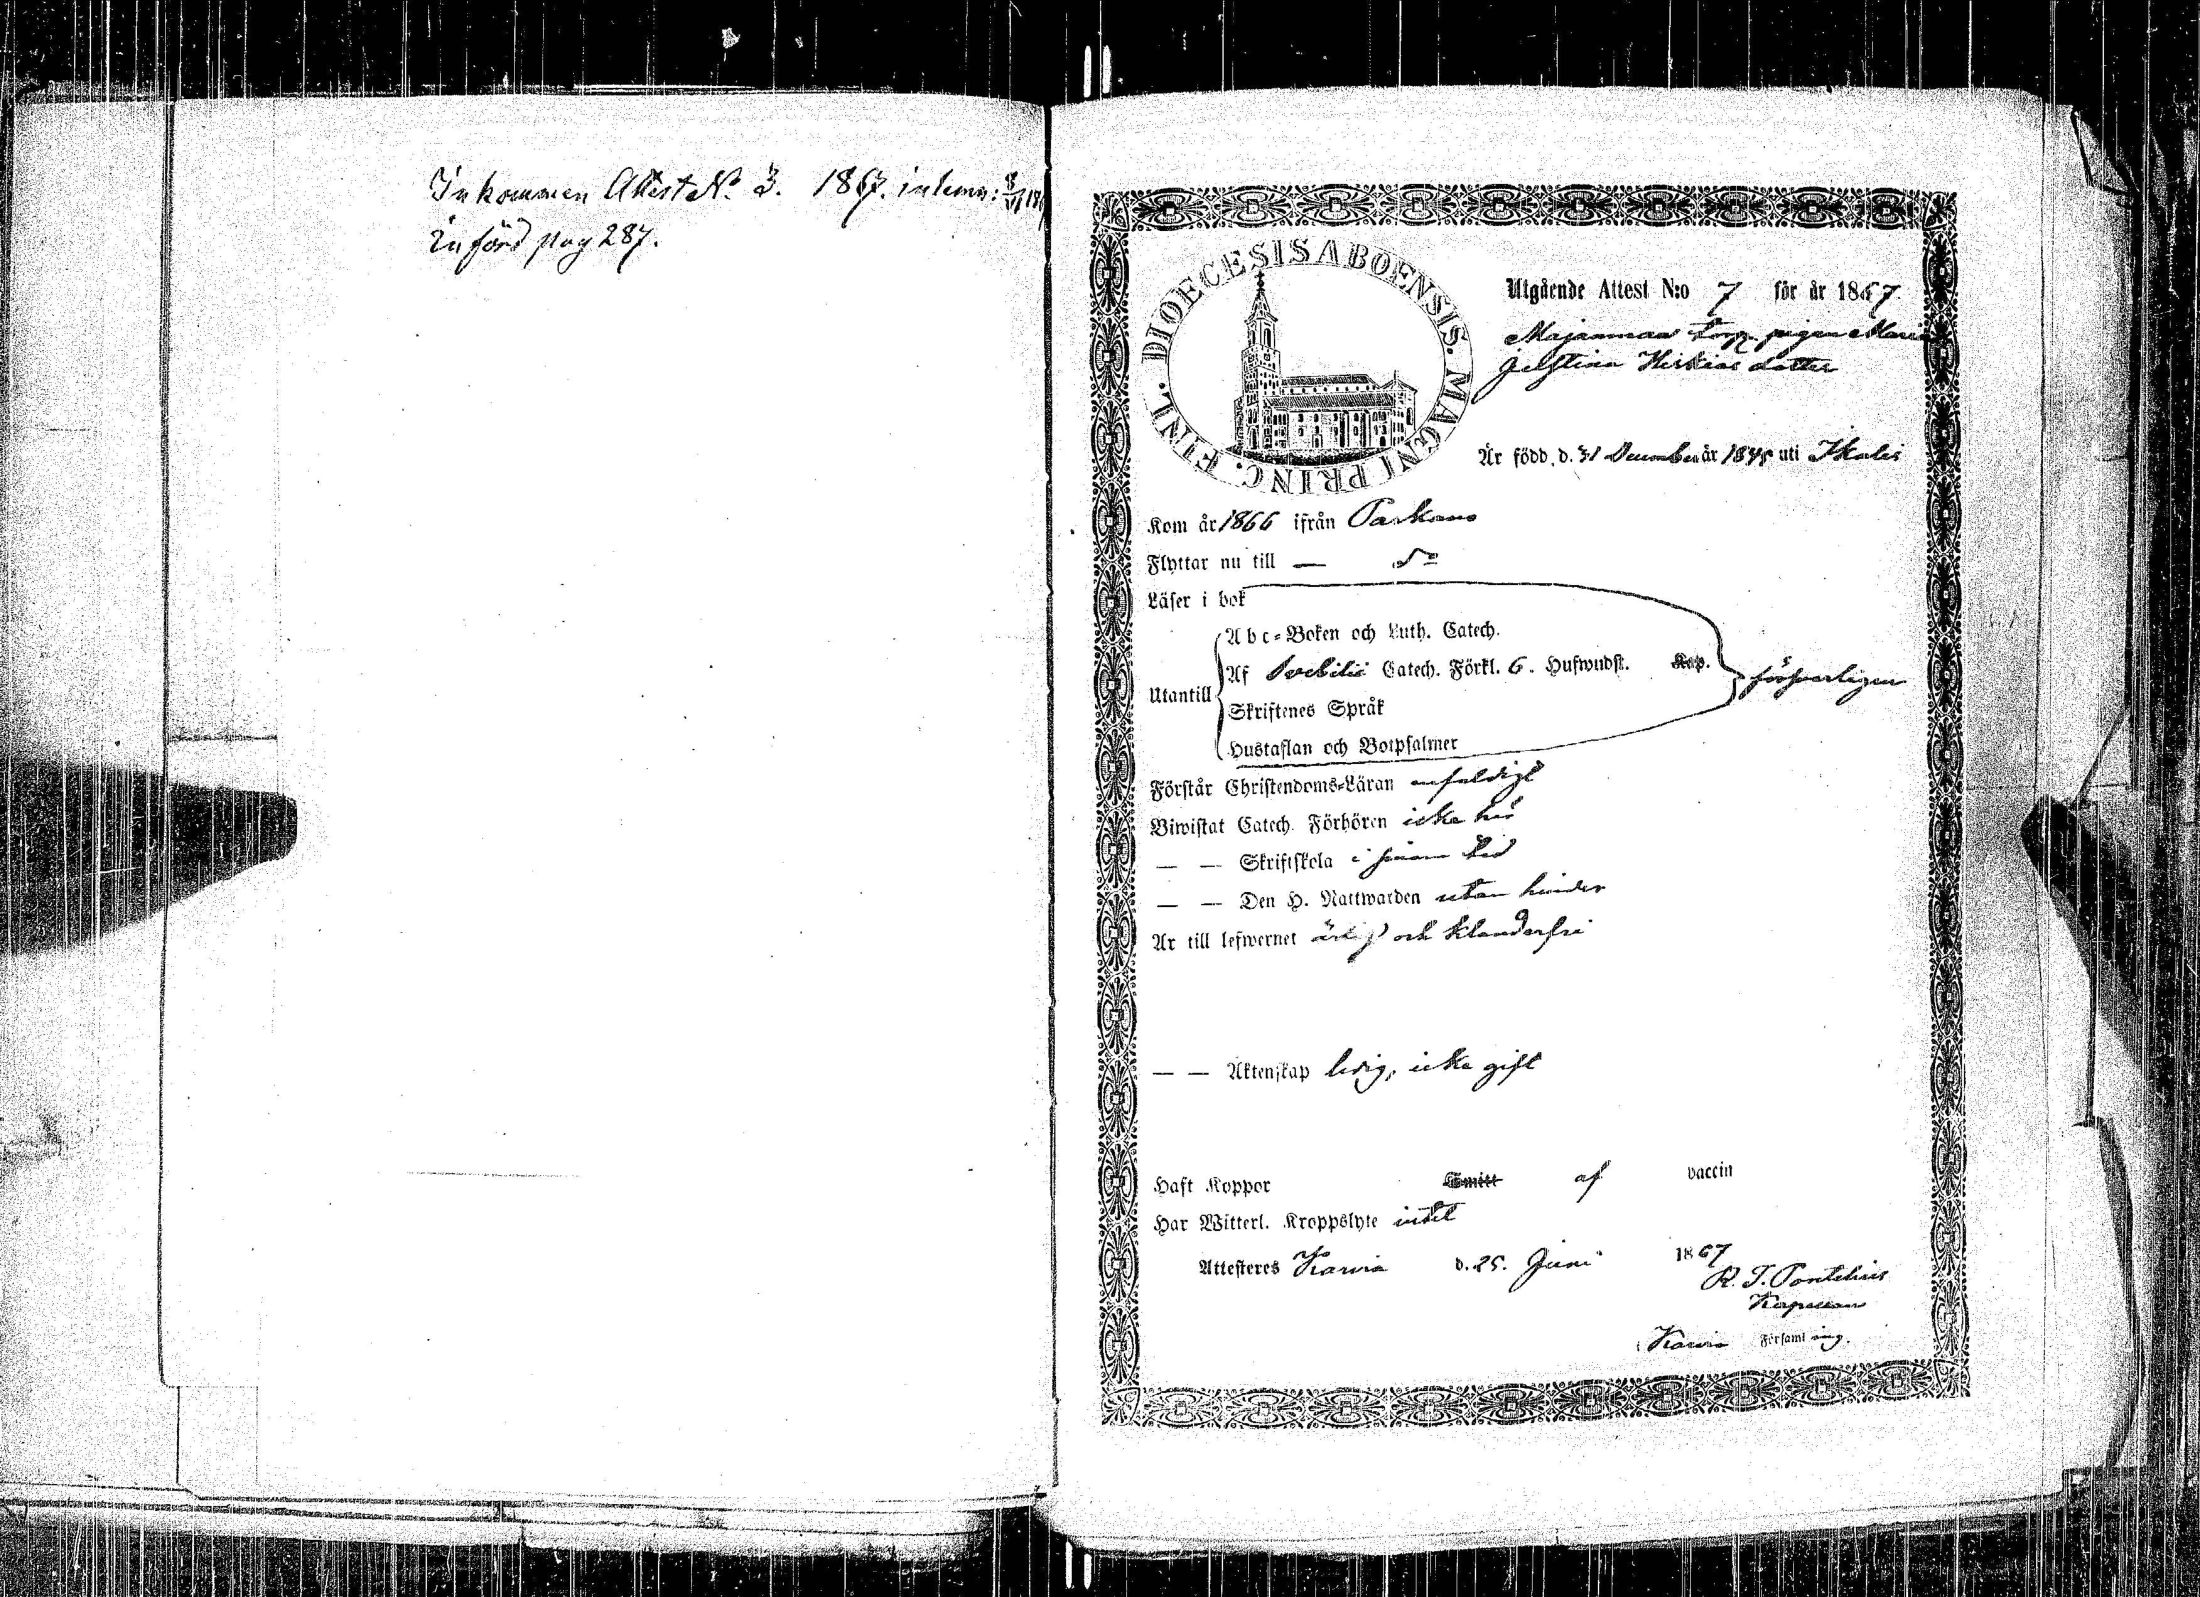 Inkommen Attest No 3. 1867. inlemn:
införd pag 287.
DIOECESIS ABOENSIS. MAGNI PRINC. FINL.
Utgående Attest N:o 7 för år 1867.
Majanmaa torp. pigan Maria
Justina Heikias dotter
Är född, d. 31 December år 1845 uti Ikalis
Kom år 1866 ifrån Parkano
Flyttar nu till — Do
Läser i bok
Abc-Boken och Luth. Catech.
Utantill
Af Svebilii Catech. Förkl. 6. Hufwudst. Kap.
försvarligen
Skriftenes Språk
Hustaflan och Botpsalmer
Förstår Christendoms-Läran enfaldigt
Biwistat Catech. Förhören icke här
— — Skriftskola i sinom tid
— — Den H. Nattwarden utan hinder
Är till lefwernet ärlig och klanderfri
— — Äktenskap ledig, icke gift
Haft Koppor Smitt af vaccin
Har Witterl. Kroppslyte intet
Attesteres Karvia d. 25. Juni 1867
R. J. Pontelius
Kapellan
i Karvia Församling.